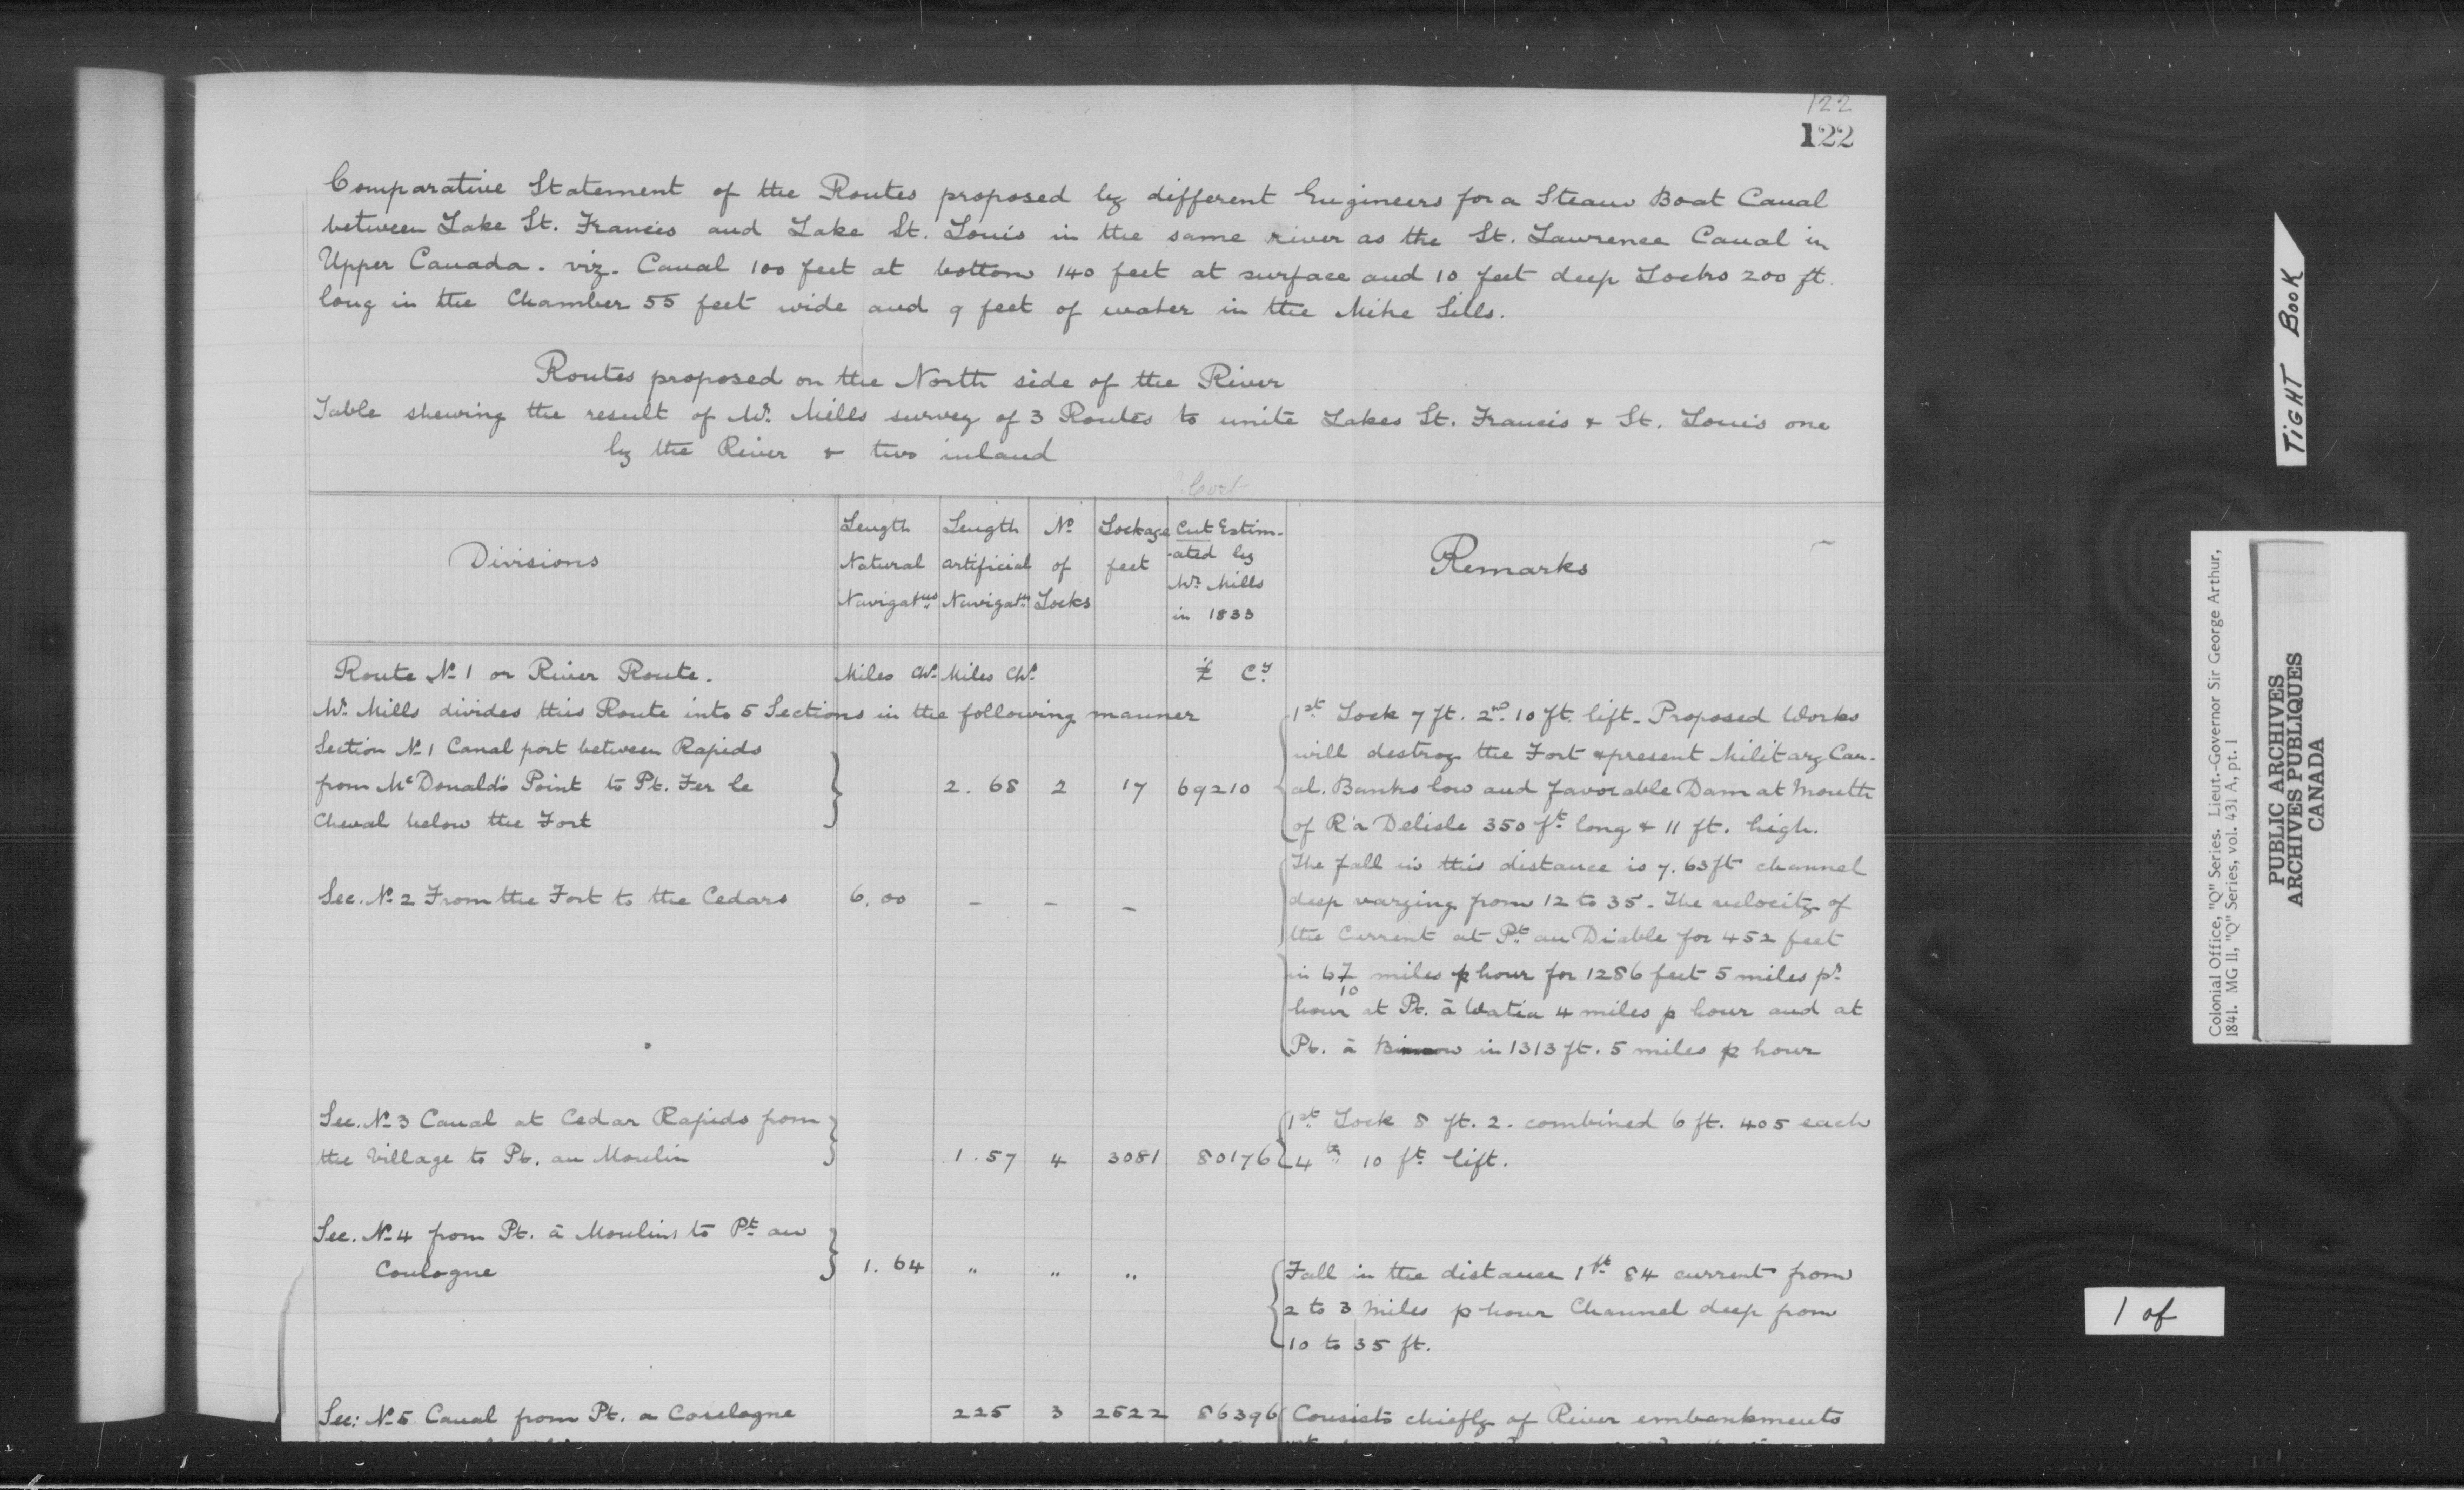 122
122
Comparative Statement of the Routes proposed by different Engineers for a Steam Boat Canal
between Lake St. Francis and Lake St. Louis in the same river as the St. Lawrence Canal in
Upper Canada. viz. Canal 100 feet at bottom 140 feet at surface and 10 feet deep Locks 200 ft.
long in the Chamber 55 feet wide and 9 feet of water in the Mitre Sills.
Routes proposed on the North side of the River
Table shewing the result of Mr. Mills survey of 3 Routes to unite Lakes St. Francis & St. Louis one
by the River & two inland
Cost
Divisions
Length Natural Navigatns
Length artificial Navigatn
No of Locks
Lockage feet
Cut Estimated by Mr. Mills in 1833
Remarks
Route No 1 or River Route. Miles Chs. Miles Chs. £ Cy
Mr. Mills divides this Route into 5 Sections in the following manner
Section No 1 Canal port between Rapids
from McDonald's Point to Pt. Fer le
Cheval below the Fort
2. 68 2 17 69210
1st Lock 7 ft. 2nd 10 ft. lift. Proposed Works
will destroy the Fort & present Military Can-
al. Banks low and favorable Dam at Mouth
of R'a Delisle 350 ft. long & 11 ft. high.
Sec. No 2 From the Fort to the Cedars 6.00 - - -
The fall in this distance is 7.63 ft channel
deep varying from 12 to 35 - The velocity of
the Current at Pt. au Diable for 452 feet
in 6 7/10 miles p hour for 1286 feet 5 miles pr
hour at Pt. à 4 miles p hour and at
Pt. à in 1313 ft. 5 miles p hour
Sec. No 3 Canal at Cedar Rapids from
the Village to Pt. au Moulin 1.57 4 3081 80176
1st Lock 8 ft. 2. combined 6 ft. 405 each
4th 10 ft. lift.
Sec. No 4 from Pt. à Moulins to Pt au
Coulogne 1. 64 " " "
Fall in the distance 1 ft 84 current from
2 to 3 miles p hour Channel deep from
10 to 35 ft.
Sec: No 5 Canal from Pt. a Coulogne 225 3 2522 86396 Consists chiefly of River embankments
TIGHT BOOK
Colonial Office, "Q" Series. Lieut.-Governor Sir George Arthur,
1841. MG 11, "Q" Series, vol. 431 A, pt. 1
PUBLIC ARCHIVES
ARCHIVES PUBLIQUES
CANADA
1 of